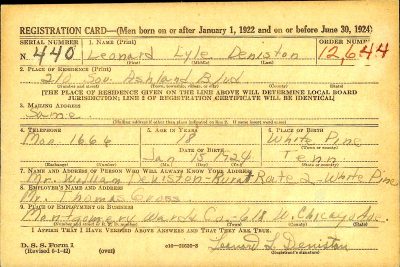 REGISTRATION CARD—(Men born on or after January 1, 1922 and on or before June 30, 1924)
SERIAL NUMBER 1. NAME (Print) ORDER NUMBER
N 440 Leonard Lyle Deniston 12,644
(First) (Middle) (Last)
2. PLACE OF RESIDENCE (Print)
210 Sou. Ashland Blvd
(Number and street) (Town, township, village, or city) (County) (State)
[THE PLACE OF RESIDENCE GIVEN ON THE LINE ABOVE WILL DETERMINE LOCAL BOARD
JURISDICTION; LINE 2 OF REGISTRATION CERTIFICATE WILL BE IDENTICAL]
3. MAILING ADDRESS
Same
(Mailing address if other than place indicated on line 2. If same insert word same)
4. TELEPHONE 5. AGE IN YEARS 6. PLACE OF BIRTH
Mon. 1666 18 White Pine
DATE OF BIRTH (Town or county)
Jan 15 1924 Tenn
(Exchange) (Number) (Mo.) (Day) (Yr.) (State or country)
7. NAME AND ADDRESS OF PERSON WHO WILL ALWAYS KNOW YOUR ADDRESS
Mr. William Deniston-Rural Rate 2 - White Pine
8. EMPLOYER'S NAME AND ADDRESS
Mr. Thomas
9. PLACE OF EMPLOYMENT OR BUSINESS
Montgomery Ward Co-618 W. Chicago Ave.
(Number and street or R. F. D. number) (Town) (County) (State)
I AFFIRM THAT I HAVE VERIFIED ABOVE ANSWERS AND THAT THEY ARE TRUE.
D. S. S. Form 1
(Revised 6-1-42) (over) Leonard L. Deniston
(Registrant's signature)